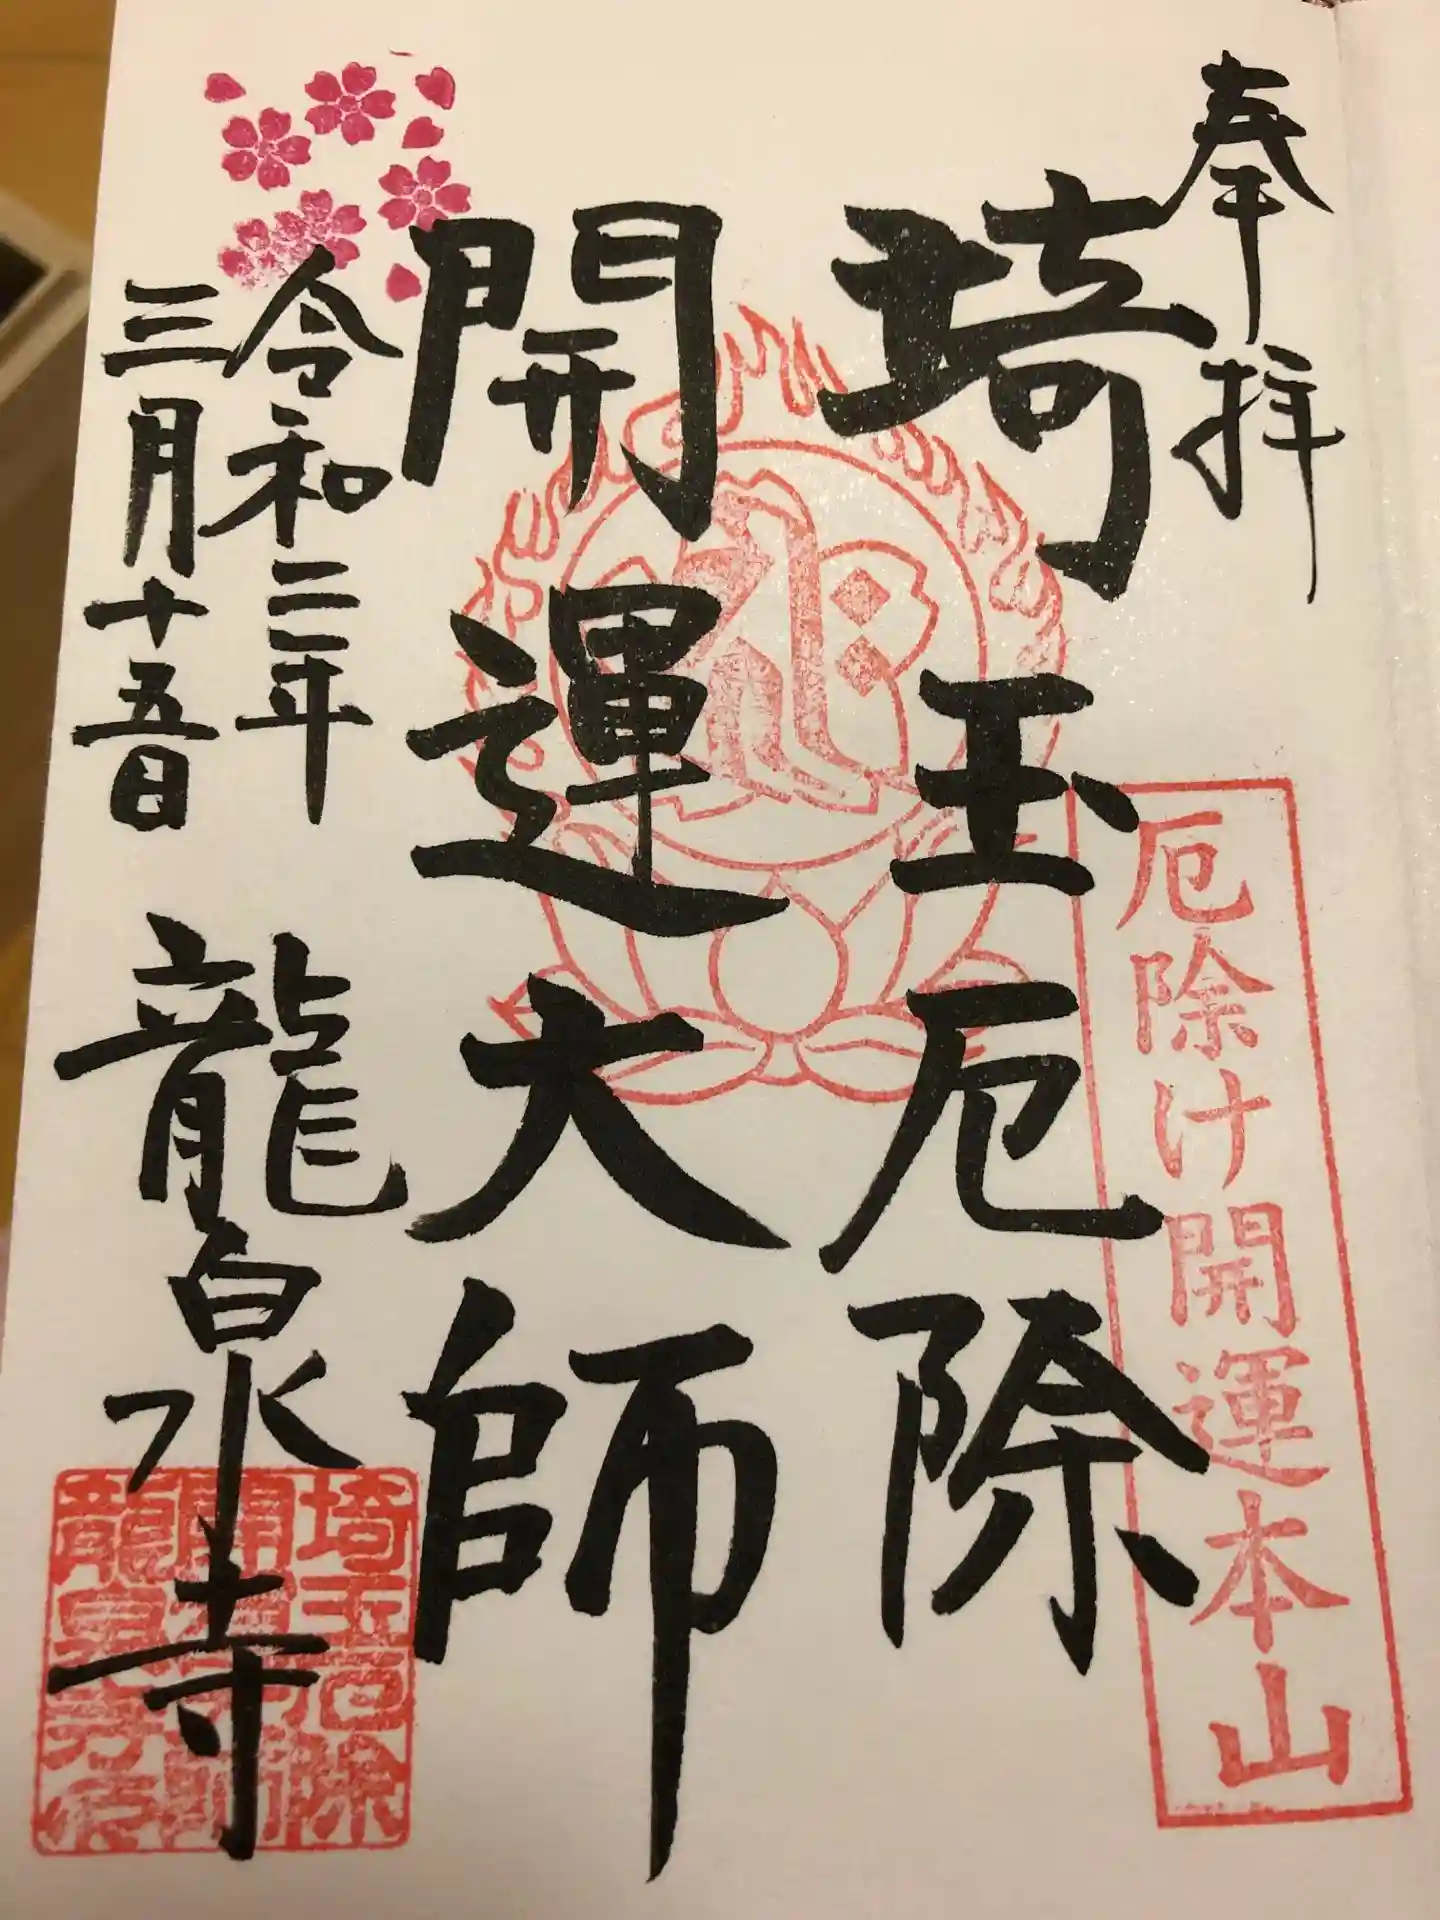 奉拝
厄除け開運本山
埼玉厄除
開運大師
令和二年
三月十五日
龍泉寺
埼玉厄除
開運大師
龍泉寺